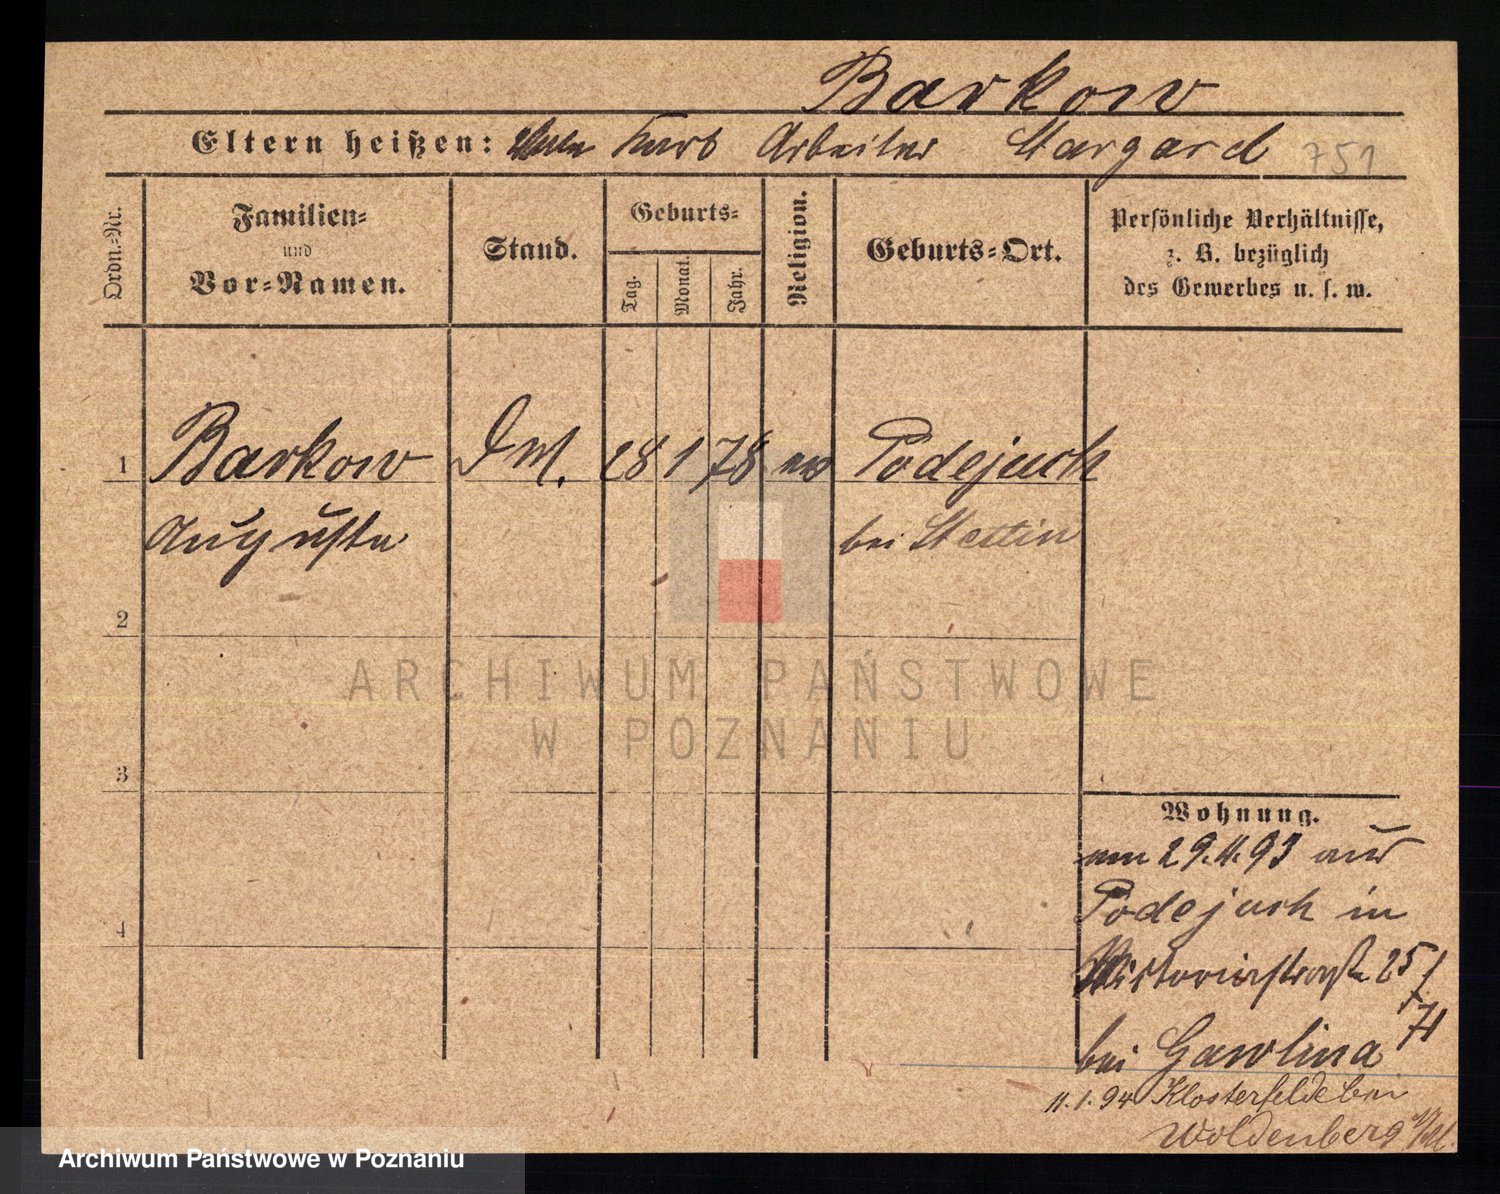 Barkow
Eltern heißen: Karl Arbeiter Stargard 751
Ordn.-Nr.
Familien-
und
Vor-Namen.
Stand.
Geburts-
Tag.
Monat.
Jahr.
Religion.
Geburts-Ort.
Persönliche Verhältnisse,
z. B. bezüglich
des Gewerbes u. s. w.
1 Barkow 28 1 78 ev Podejuch
Auguste bei Stettin
2
3
4
Wohnung.
am 29.4.93 aus
Podejuch in
Victoriastraße 25 I
bei Gawlina
11.1.94 Klosterfelde bei
Woldenberg
ARCHIWUM PAŃSTWOWE
W POZNANIU
Archiwum Państwowe w Poznaniu